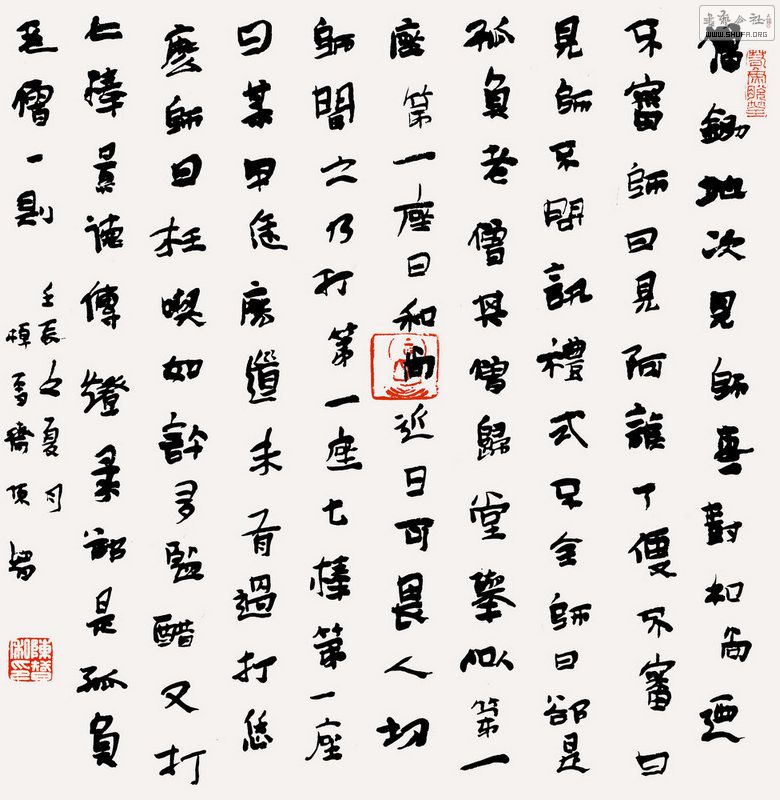 僧鋤地次見師對和尚迺
不審師曰見阿誰了便不審曰
見師不問訊禮式不全師曰卻是
孤負老僧其僧歸堂舉似第一
座第一座曰和尚近日可畏人切
師聞之乃打第一座七棒第一座
曰某甲恁麼道未有過打恁
麼師曰枉喫如許多鹽醋又打
七棒景德傳燈彔卻是孤負
老僧一則
壬辰之夏月
雪齋
書藝公社
WWW.SHUFA.ORG